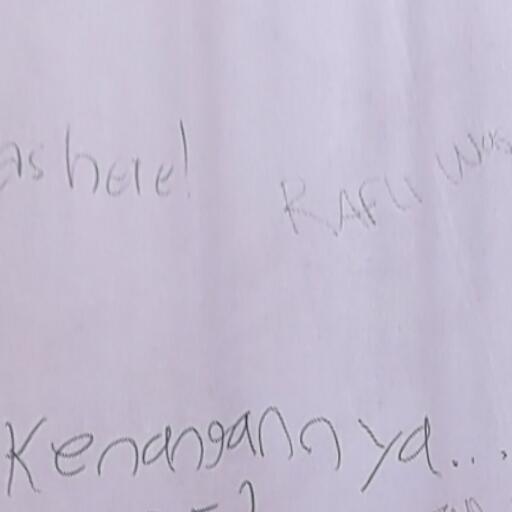 as here!
RAFLI Was
Kenangannya...